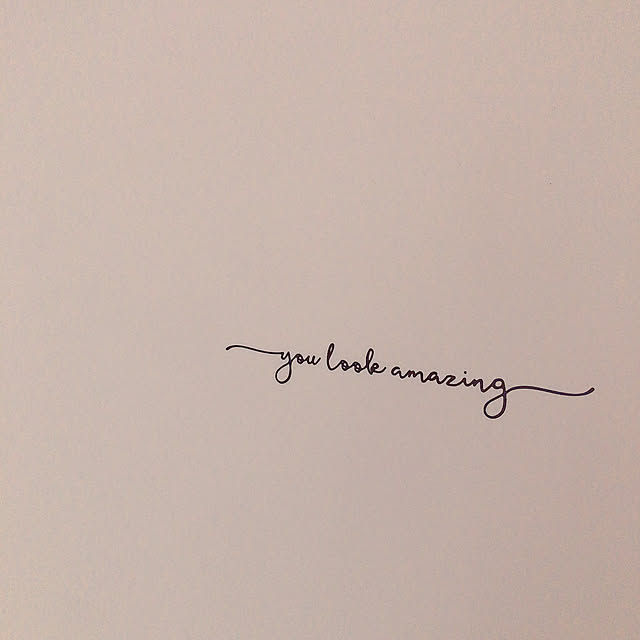 you look amazing